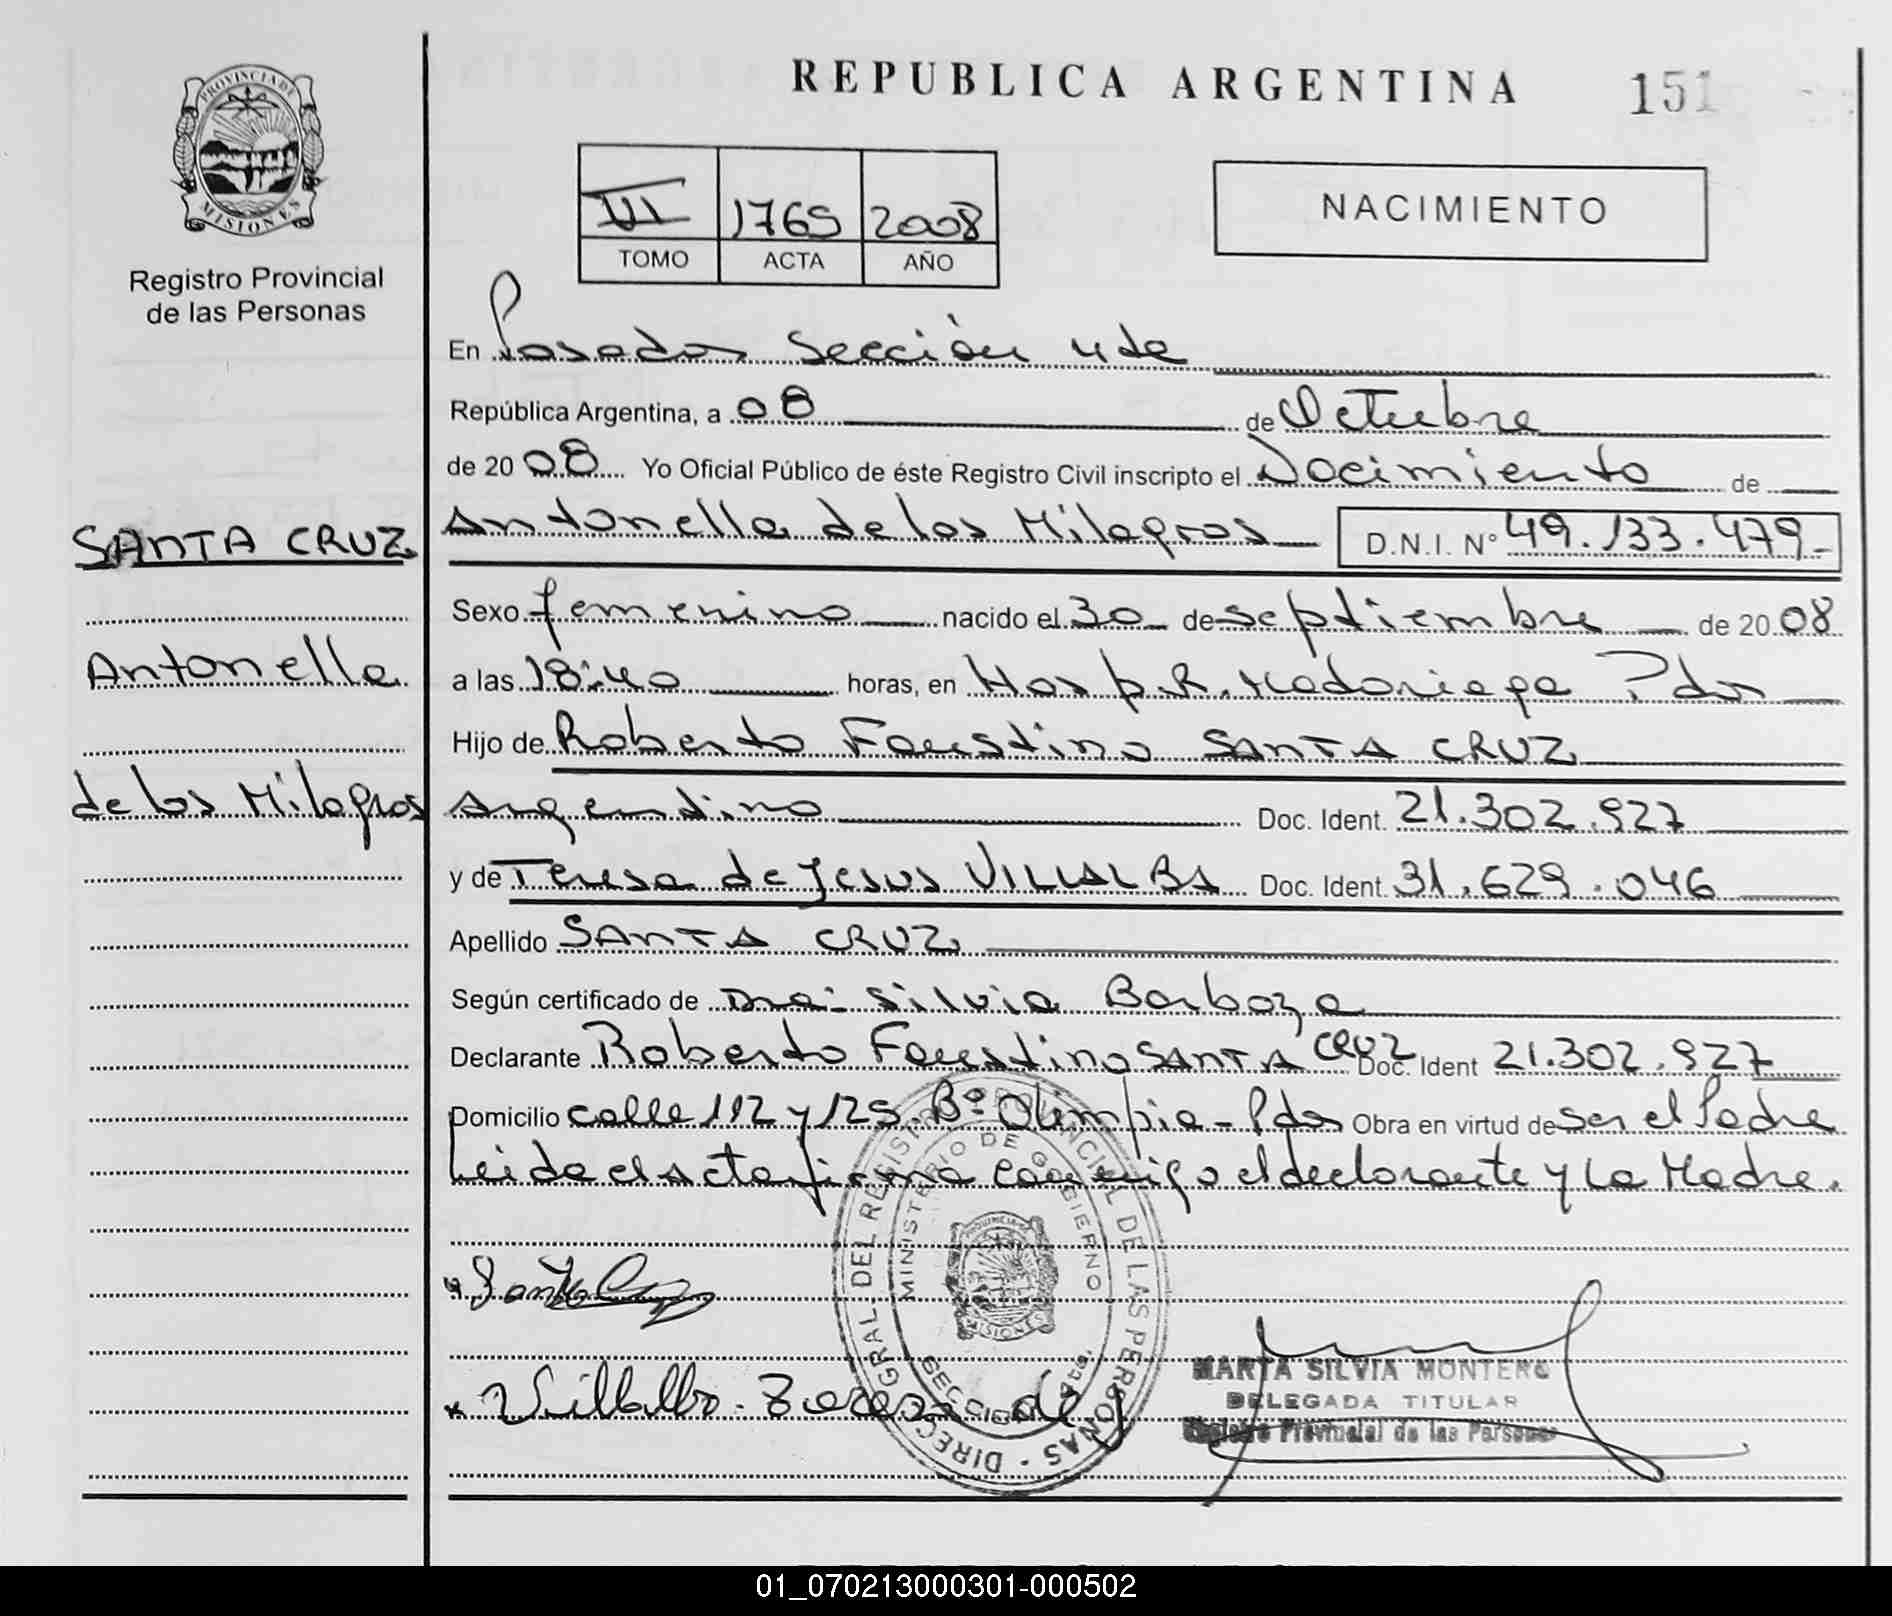 REPUBLICA ARGENTINA
151
PROVINCIA DE MISIONES
Registro Provincial
de las Personas
III 1765 2008
TOMO ACTA AÑO
NACIMIENTO
En Posadas Sección 4ta
República Argentina, a 08 de Octubre
de 2008 Yo Oficial Público de éste Registro Civil inscripto el Nacimiento de
SANTA CRUZ
Antonella de los Milagros D.N.I. N° 49.133.479-
Sexo femenino nacido el 30 de septiembre de 2008
Antonella
a las 18:40 horas, en Hosp. R. Madariaga Pdas
Hijo de Roberto Faustino SANTA CRUZ
de los Milagros
Argentino Doc. Ident. 21.302.927
y de Teresa de Jesus VILLALBA Doc. Ident. 31.629.046
Apellido SANTA CRUZ
Según certificado de Dra: Silvia Barboza
Declarante Roberto Faustino SANTA CRUZ Doc. Ident 21.302.927
Domicilio calle 112 y 125 B° Olimpia - Pdas Obra en virtud de ser el Padre
Leida el Acta firma conmigo el declarante y La Madre.
DIRECC. GRAL DEL REGISTRO PROVINCIAL DE LAS PERSONAS
MINISTERIO DE GOBIERNO
PROVINCIA DE MISIONES
SECCION 4ta.
Santa Cruz
Villalba Teresa de J
MARTA SILVIA MONTERO
DELEGADA TITULAR
Registro Provincial de las Personas
01_070213000301-000502